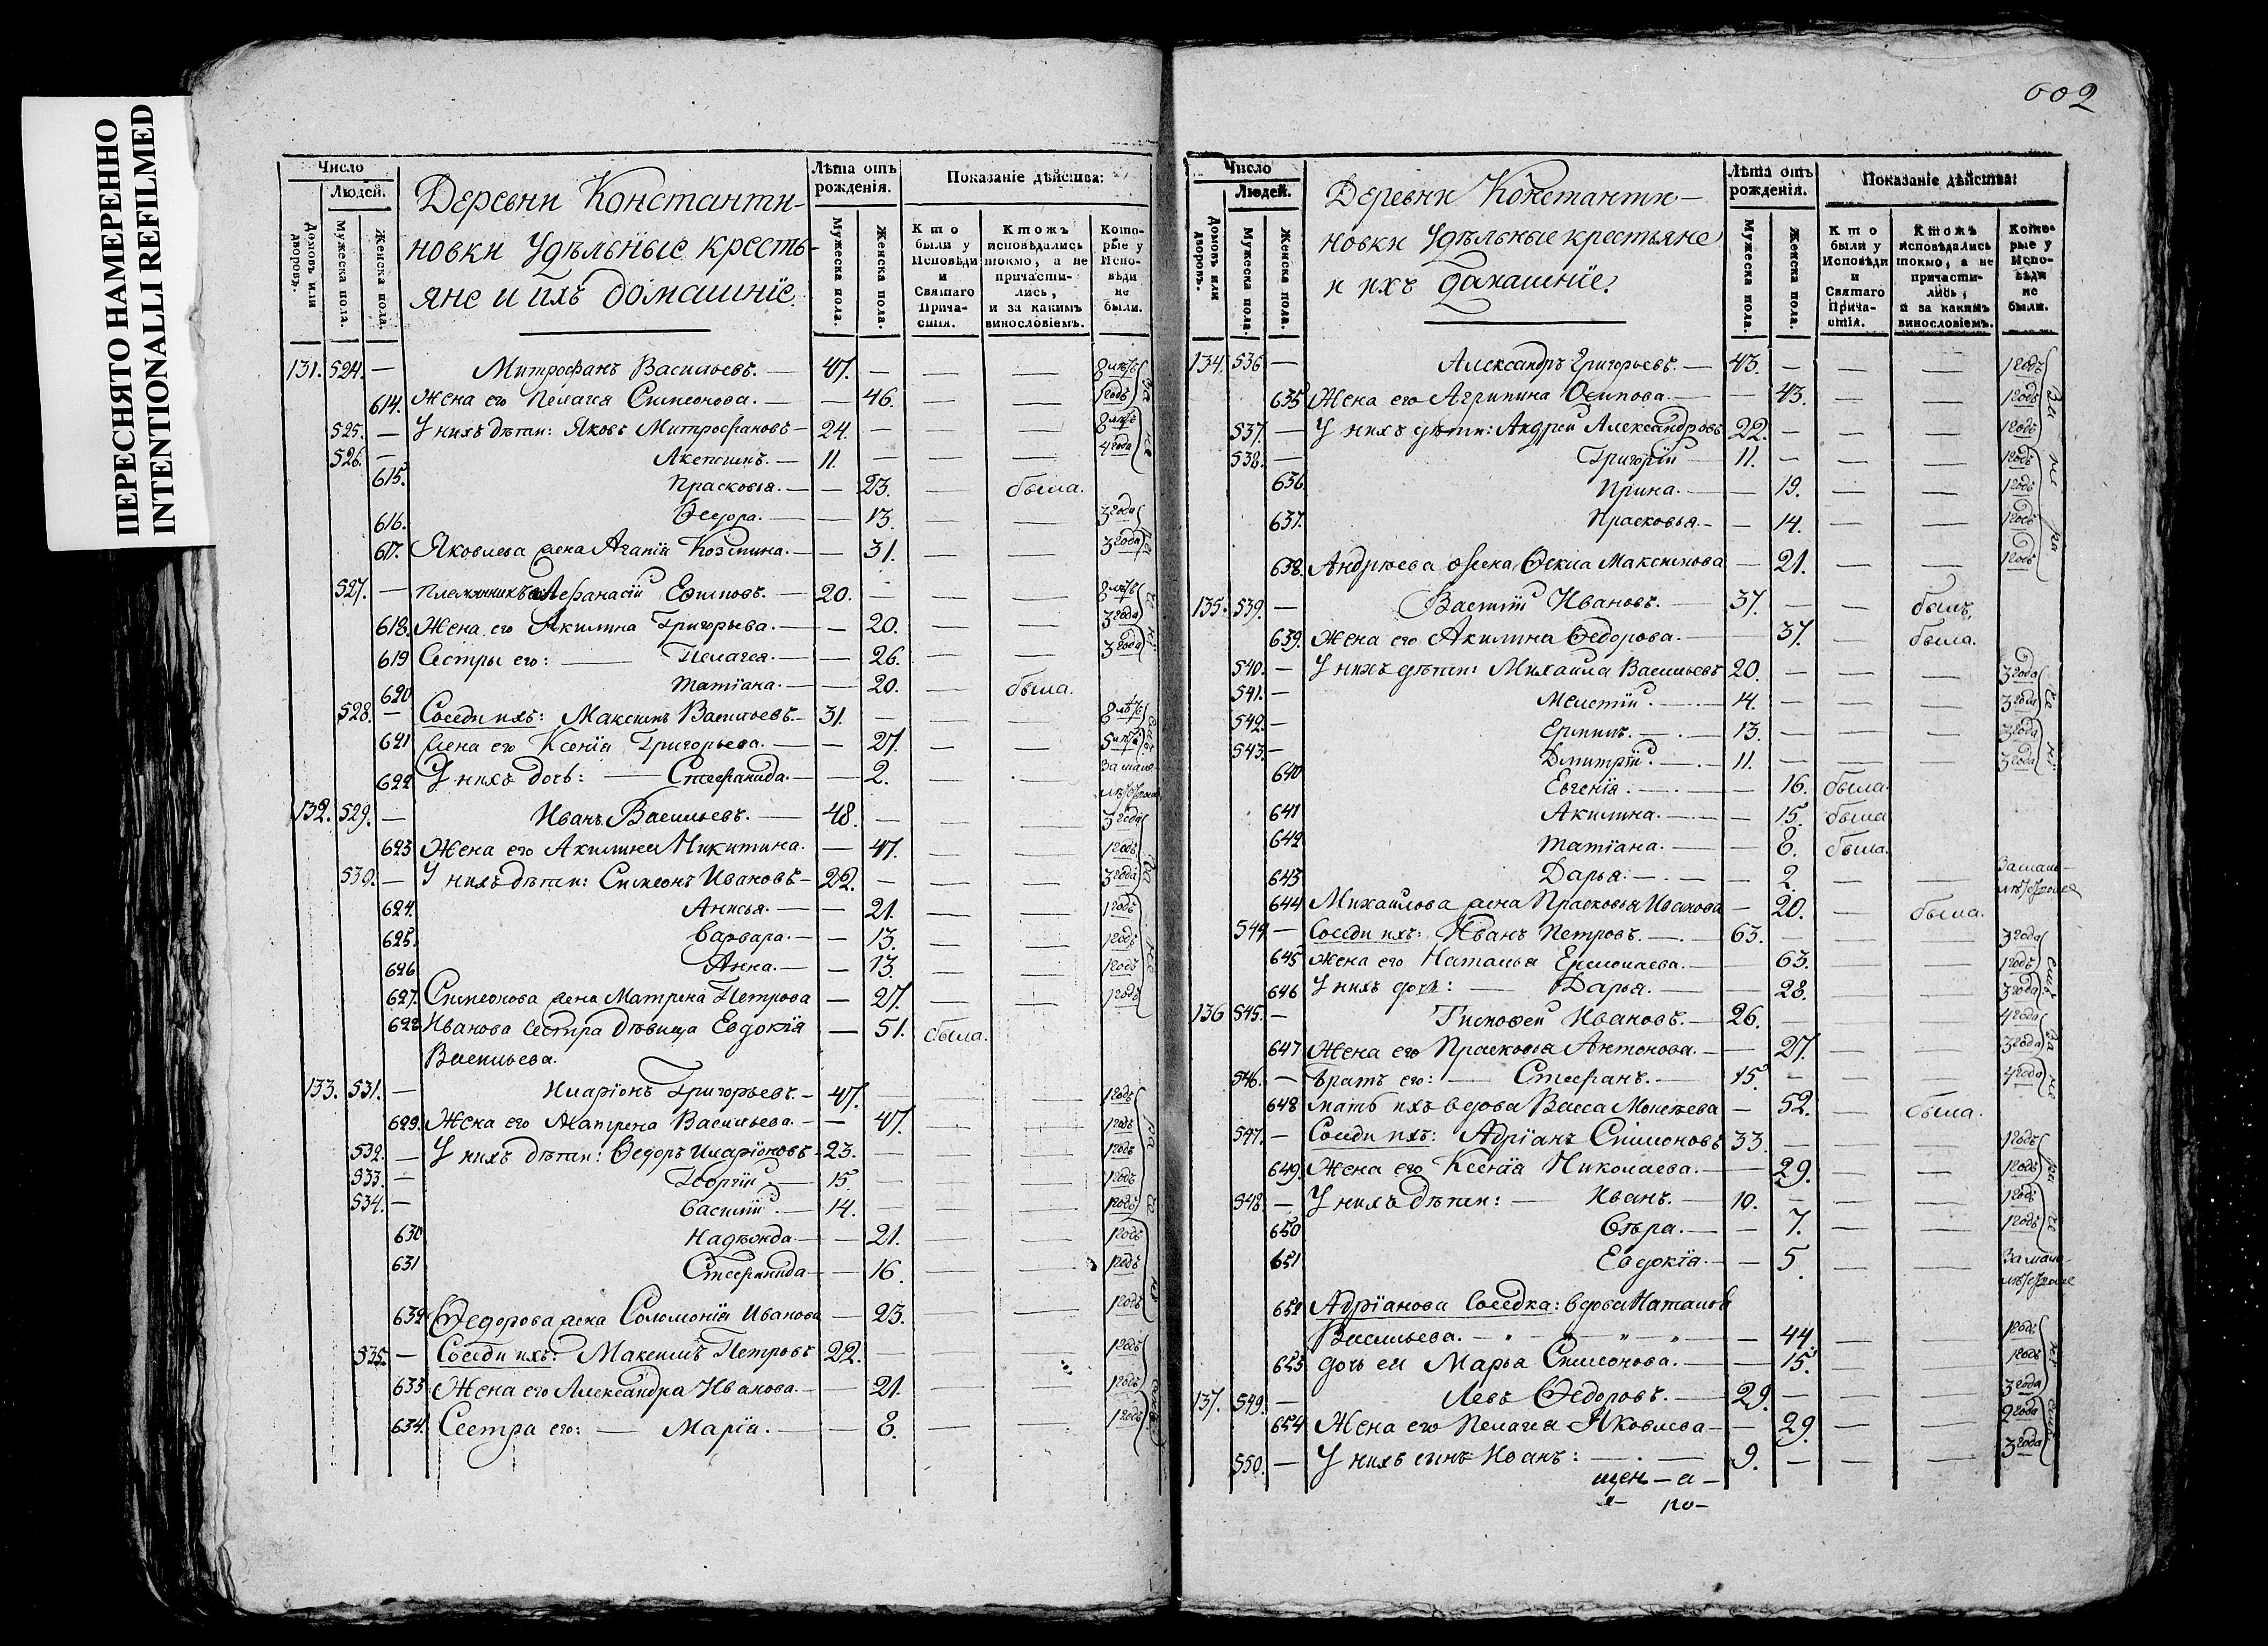 ПЕРЕСНЯТО НАМЕРЕННО
INTENTIONALLI REFILMED
Число
Людей.
Домовъ или дворовъ.
Мужеска пола.
Женска пола.
Деревни Константи-
новки Удѣльные кресть-
яне и ихъ домашніе.
Лѣта отъ рожденія.
Мужеска пола.
Женска пола.
Показаніе дѣйства:
Кто были у Исповѣди и Святаго Прича-стія.
Ктожъ исповѣдались токмо, а не причасти-лись, и за какимъ винословіемъ.
Кото-рые у Испо-вѣди не были.
131. 524. — Митрофанъ Васильевъ. — 47. — — — 8 лѣтъ
614. Жена его Пелагея Симеонова. — — 46. — — 1 годъ
525. — У нихъ дѣти: Яковъ Митрофановъ — 24. — — — 8 лѣтъ
526. — Акепсимъ. — 11. — — — 4 года
615. Прасковья. — — 23. — была.
616. Ѳедора. — — 13. — — 3 года
617. Яковлева жена Агапія Козмина. — — 31. — — 3 года
527. — Племянникъ Афанасій Ефимовъ. — 20. — — — 8 лѣтъ
618. Жена его Акилина Григорьева. — — 20. — — 3 года
619 Сестры его: — Пелагея. — — 26. — — 3 года
620 Татіана. — — 20. — была.
528. — Соседи ихъ: Максимъ Васильевъ. — 31. — — — 8 лѣтъ
621 Жена его Ксенія Григорьева. — — 27. — — 5 лѣтъ
622 У нихъ дочь: — Стефанида. — — 2. — — За мало-
лѣтствомъ
132. 529. — Иванъ Васильевъ. — 48. — — — 3 года
623 Жена его Акилина Никитина. — — 47. — — 1 годъ
530. — У нихъ дѣти: Симеонъ Ивановъ — 22. — — — 3 года
624. Анисья. — — 21. — — 1 годъ
625. Варвара. — — 13. — — 1 годъ
626 Анна. — — 13. — — 1 годъ
627. Симеонова жена Матрена Петрова — 27. — — 1 годъ
628 Иванова сестра дѣвица Евдокія — 51. была.
Васильева.
133. 531. — Иларіонъ Григорьевъ. — 47. — — — 1 годъ
629. Жена его Матрена Васильева. — — 47. — — 1 годъ
532. — У нихъ дѣти: Ѳедоръ Иларіоновъ — 23. — — — 1 годъ
533. — Георгій. — 15. — — — 1 годъ
534. — Василій. — 14. — — — 1 годъ
630 Надежда. — — 21. — — 1 годъ
631 Стефанида — — 16. — — 1 годъ
632 Ѳедорова жена Соломонія Иванова — 23. — — 1 годъ
535. — Соседи ихъ: Максимъ Петровъ 22. — — — 1 годъ
633 Жена его Александра Иванова. — — 21. — — 1 годъ
634. Сестра его: — Марія. — — 8. — — 1 годъ
002
Число
Людей.
Домовъ или дворовъ.
Мужеска пола.
Женска пола.
Деревни Константи-
новки Удѣльные крестьяне
и ихъ домашніе.
Лѣта отъ рожденія.
Мужеска пола.
Женска пола.
Показаніе дѣйства:
Кто были у Исповѣди и Святаго Прича-стія.
Ктожъ исповѣдались токмо, а не причасти-лись, и за какимъ винословіемъ.
Кото-рые у Испо-вѣди не были.
134. 536. — Александръ Григорьевъ. — 43. — — — 1 годъ
635 Жена его Агрипина Осипова. — — 43. — — 1 годъ
537. — У нихъ дѣти: Андрей Александровъ 22. — — — 1 годъ
538. — Григорій — 11. — — — 1 годъ
636. Ирина. — — 19. — — 1 годъ
637. Прасковья. — — 14. — — 1 годъ
638. Андреева жена Ѳекла Максимова — 21. — — 1 годъ
135. 539. — Василій Ивановъ. — 37. — — былъ.
639. Жена его Акилина Ѳедорова. — — 37. — была.
540. — У нихъ дѣти: Михаила Васильевъ 20. — — — 3 года
541. — Мелетій. — 14. — — — 3 года
542. — Ермилъ. — 13. — — — 3 года
543. — Дмитрій. — 11. — — — 3 года
640 Евгенія. — — 16. была.
641 Акилина. — — 15. была
642 Татіана. — — 8. была.
643 Дарья. — — 2. — — За мало-
лѣтствомъ
644 Михаилова жена Прасковья Иванова — 20. — была.
544 — Соседи ихъ: Иванъ Петровъ. — 63. — — — 3 года
645 Жена его Наталья Ермолаева. — — 63. — — 1 годъ
646 У нихъ дочь: — Дарья. — — 28. — — 3 года
136 545. — Тимофей Ивановъ. — 26. — — — 4 года
647 Жена его Прасковья Антонова. — — 27. — — 3 года
546. — Братъ его: — Стефанъ. — 15. — — — 4 года
648 Мать ихъ вдова Васса Моисеева — 52. — была.
547. — Соседи ихъ: Адріанъ Симоновъ 33. — — — 1 годъ
649. Жена его Ксенія Николаева. — — 29. — — 1 годъ
548. — У нихъ дѣти: — Иванъ. — 10. — — — 1 годъ
650 Вѣра. — — 7. — — 1 годъ
651 Евдокія. — — 5. — — За мало-
лѣтствомъ
652 Адріанова соседка: вдова Наталья
Васильева. — — 44. — — 1 годъ
653 Дочь ея Марья Симеонова. — — 15. — — 1 годъ
137. 549. — Левъ Ѳедоровъ. — 29. — — — 3 года
654 Жена его Пелагея Яковлева — — 29. — — 2 года
550. — У нихъ сынъ Иоанъ: — 9. — — — 3 года